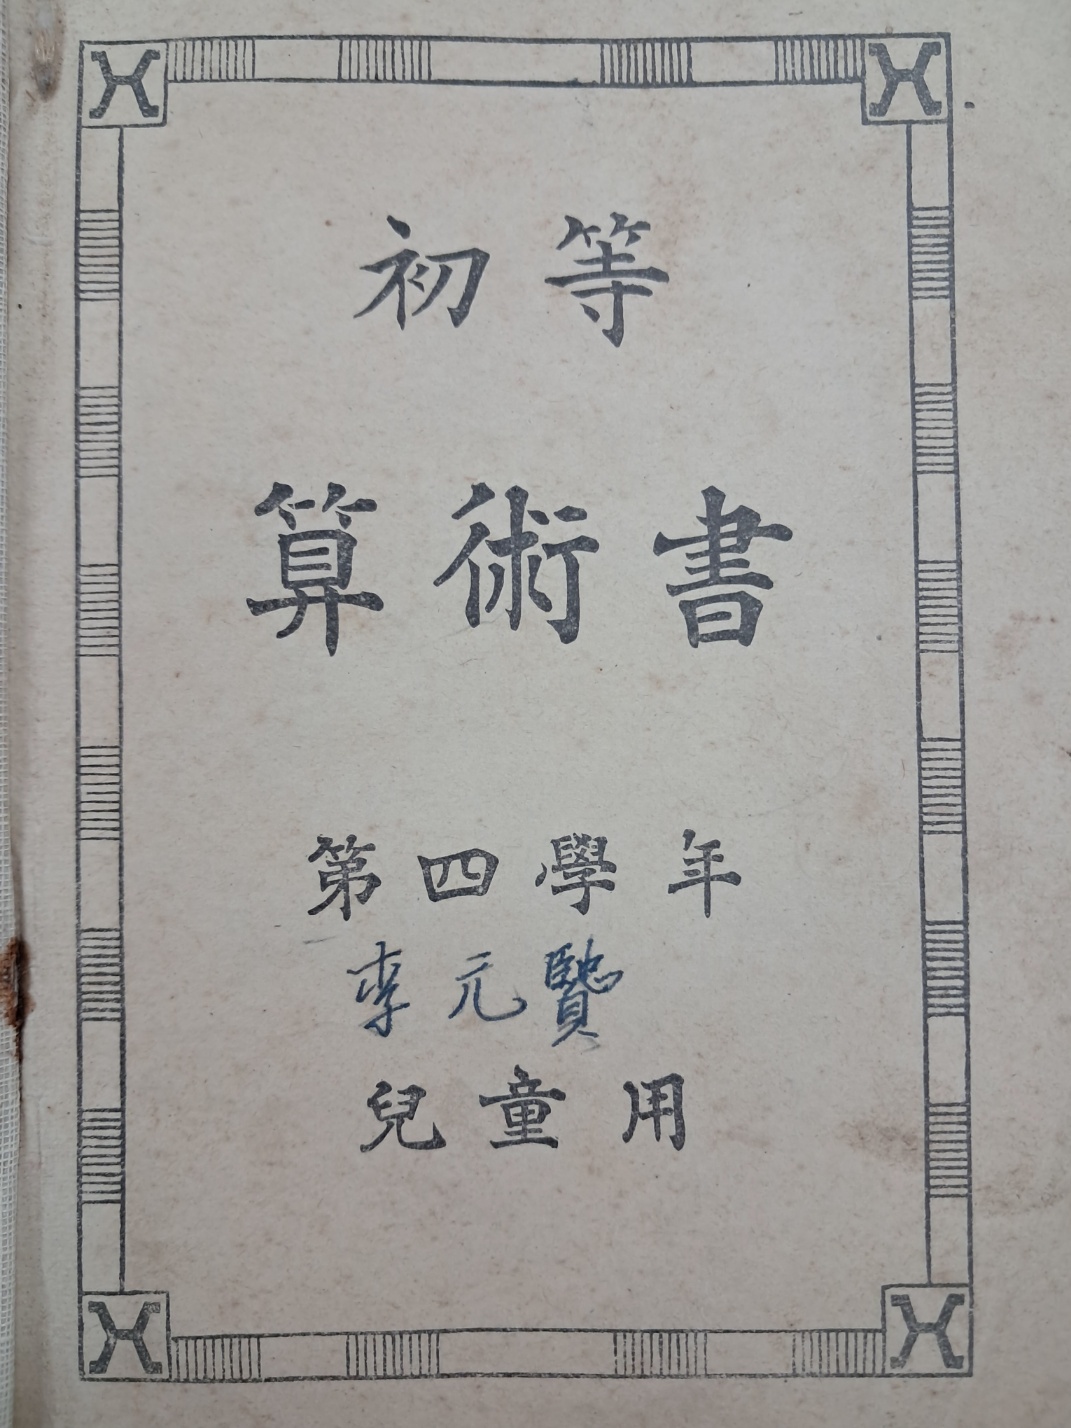 初等
算術書
第四學年
李元
兒童用